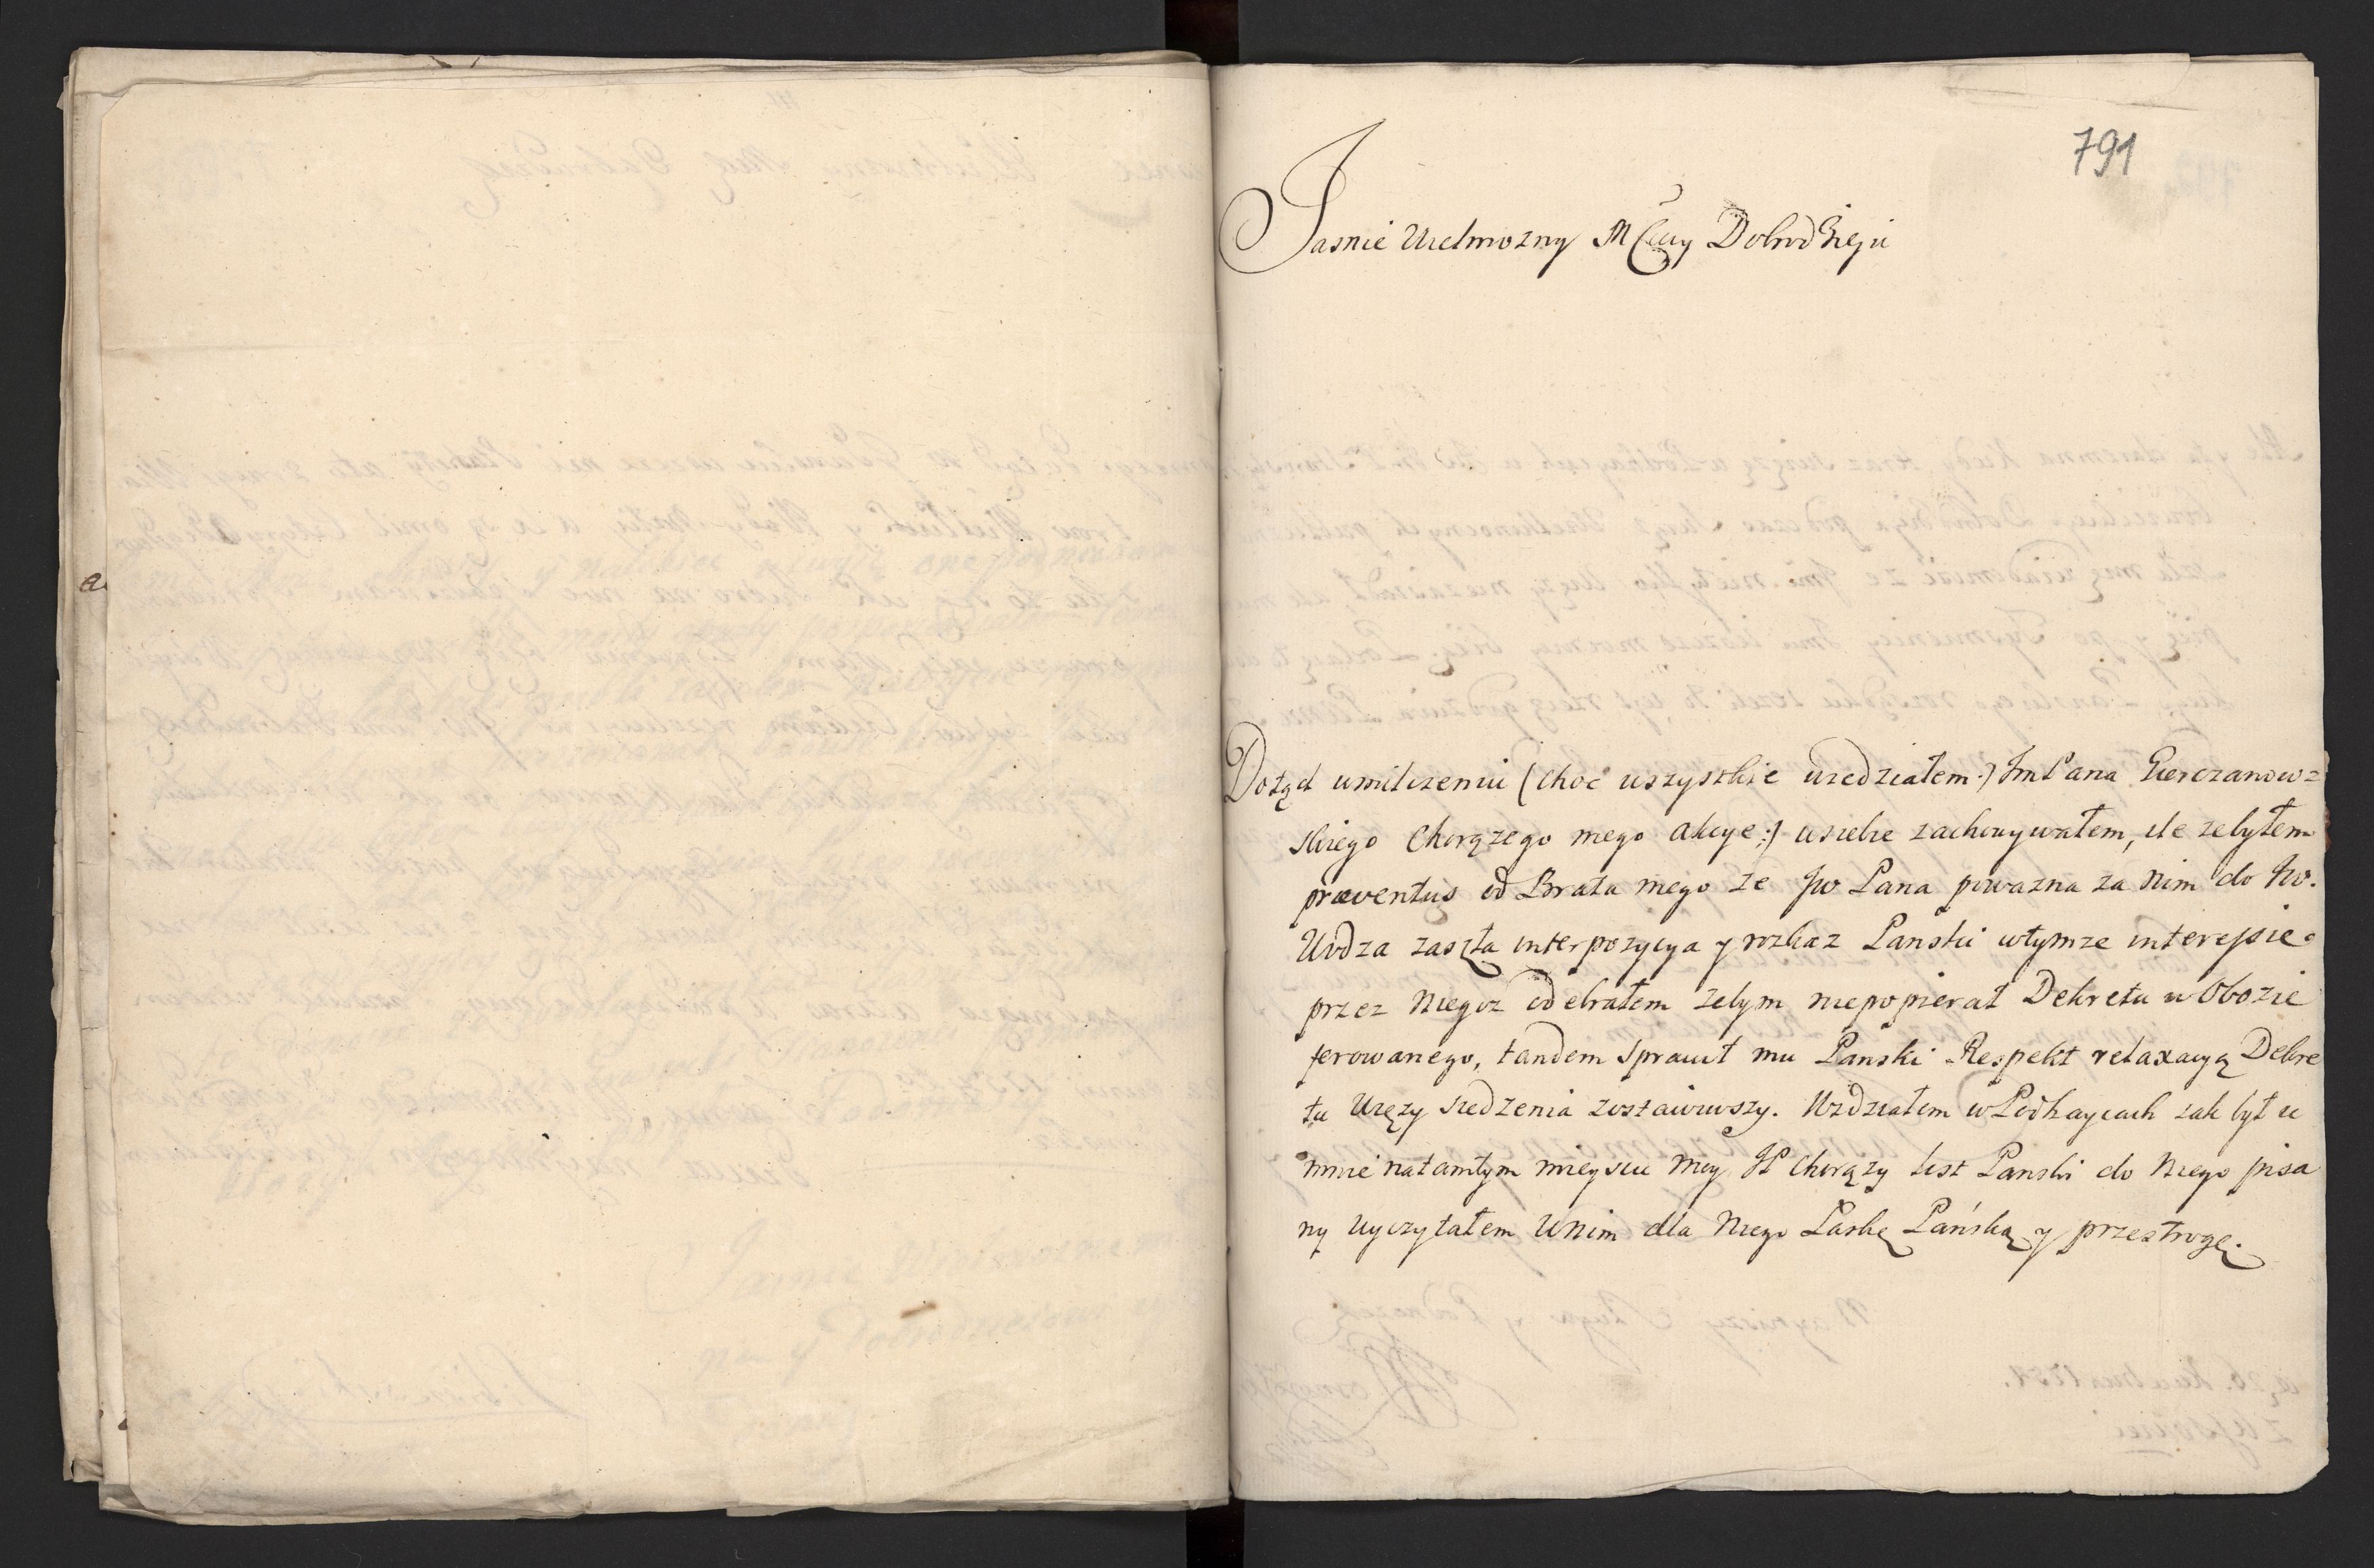 791
Jasnie Wielmozny MCiwy Dobrodzieju
Dotąd wmilczeniu (choc wszyszkie wiedziałem:) ImPana Gierczanow=
skiego Chorązego mego akcye:) wsiebie zachowywałem, ile zebyłem
præventus od Brata mego ze Jw Pana powazna za nim do Jw.
Wodza zaszła interpozycya y rozkaz Panski wtymze interessie
przez Niegoz odebrałem zebym niepopierał Dekretu w Obozie
ferowanego, tandem sprawił mu Panski Respekt relaxacyą Dekre
tu Wiezy siedzenia zostawiwszy. Widziałem w Podhaycach jak był u
mnie natamtym mieyscu moy JP Chorązy list Panski do Niego pisa
ny wyczytałem wnim dla Niego Łaskę Pańską y przestrogę.